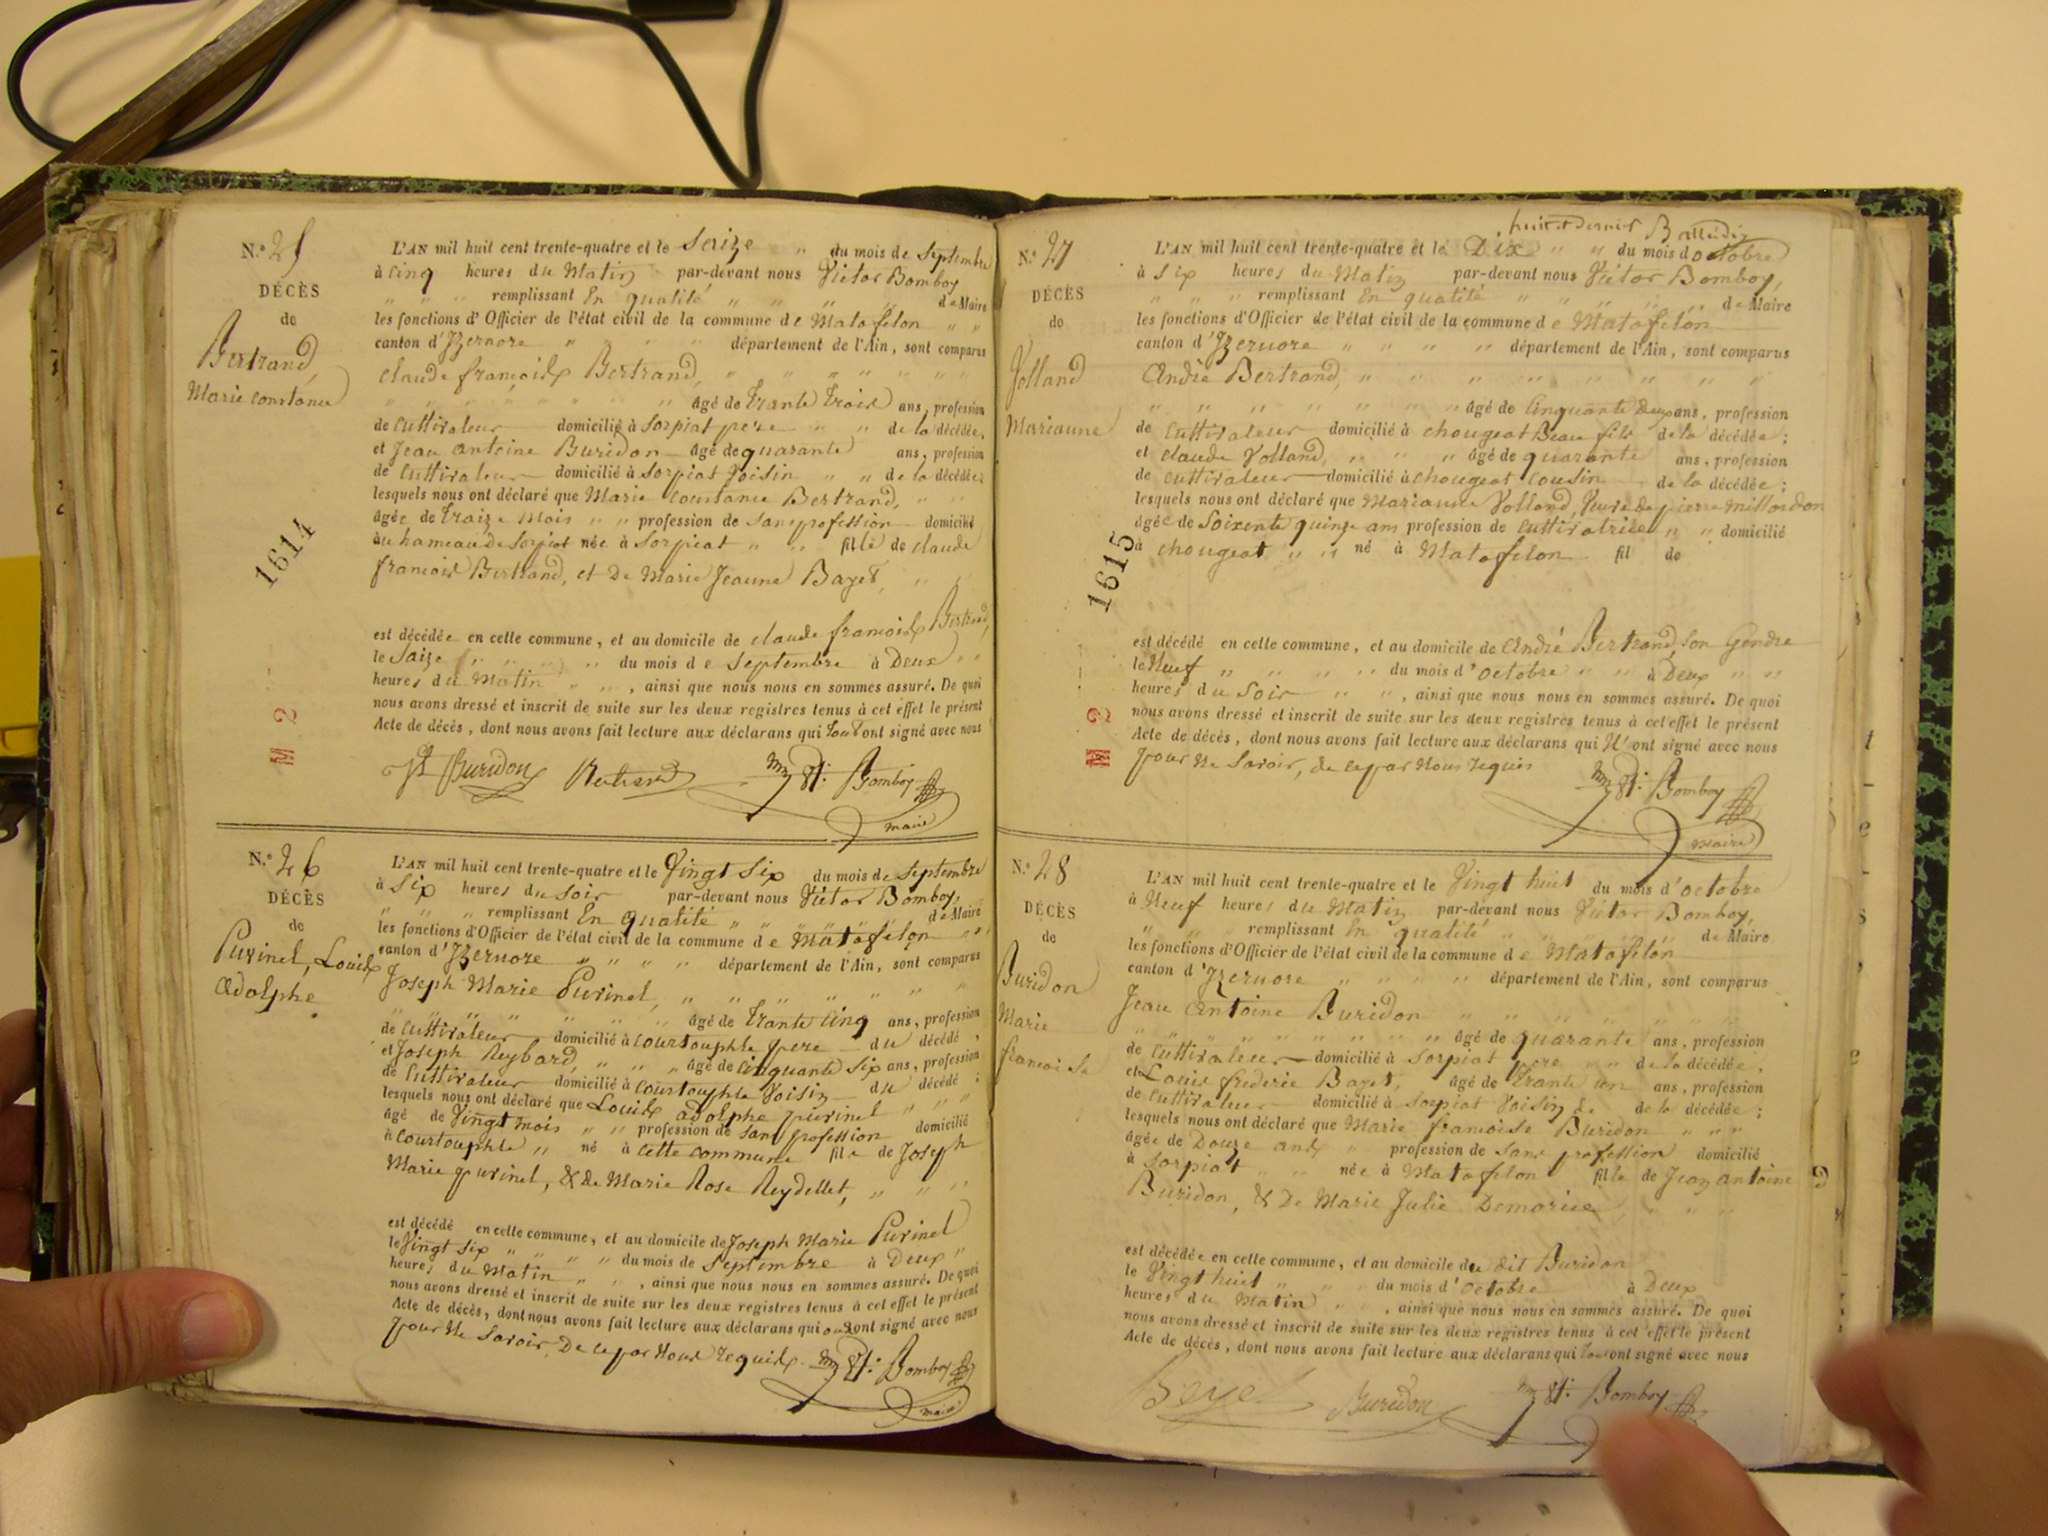 N.° 25
DÉCÈS
de
Bertrand,
Marie constance
1614
M 2
L'AN mil huit cent trente-quatre et le Saize " du mois de Septembre
à cinq heures du Matin par-devant nous Victor Bomboy
" " " remplissant En qualité " " " " " de Maire
les fonctions d'Officier de l'état civil de la commune de Matafelon " "
canton d'Izernore " " " " département de l'Ain, sont comparus
claude françois Bertrand, " " " " " " "
" " " " " " " " âgé de trante trois ans, profession
de Cultivateur domicilié à Sorpiat pere " " de la décédée,
et Jean antoine Buridon âgé de quarante ans, profession
de Cultivateur domicilié à Sorpiat Voisin " " de la décédée;
lesquels nous ont déclaré que Marie Constance Bertrand, " "
âgée de traize Mois " " profession de Sans profession domicilié
au hameau de Sorpiat née à Sorpieat " " fille de claude
francois Bertrand, et De Marie Jeanne Bayet, " "
est décédée en cette commune, et au domicile de claude francois Bertrand,
le Saize " " " " du mois de Septembre à Deux " "
heures du Matin " " , ainsi que nous nous en sommes assuré. De quoi
nous avons dressé et inscrit de suite sur les deux registres tenus à cet effet le présent
Acte de décès, dont nous avons fait lecture aux déclarans qui tout ont signé avec nous
Buridon Bertrand Bomboy
maire
N.° 26
DÉCÈS
de
Purinel, Louis
adolphe
L'AN mil huit cent trente-quatre et le Vingt Six du mois de Septembre
à Six heures du Soir par-devant nous Victor Bomboy,
" " " remplissant En qualité " " " " " de Maire
les fonctions d'Officier de l'état civil de la commune de Matafelon " "
canton d'Izernore " " " " département de l'Ain, sont comparus
Joseph Marie Purinel, " " " " " " "
" " " " " " " âgé de trante cinq ans, profession
de Cultivateur domicilié à Courtouphle pere du décédé,
et Joseph Reybard, " " " âgé de Cinquante Six ans, profession
de Cultivateur domicilié à Courtouphle Voisin du décédé;
lesquels nous ont déclaré que Louis adolphe purinel " " "
âgé de Vingt mois " " profession de Sans profession domicilié
à Courtouphle " né à cette commune fils de Joseph
Marie purinel, & de Marie Rose Reydellet, " " "
est décédé en cette commune, et au domicile de Joseph Marie Purinel
le Vingt Six " " " " du mois de Septembre à Deux "
heures du Matin " " , ainsi que nous nous en sommes assuré. De quoi
nous avons dressé et inscrit de suite sur les deux registres tenus à cet effet le présent
Acte de décès, dont nous avons fait lecture aux déclarans qui ont signé avec nous
pour Ne Savoir, De ce par Nous requis. Bomboy
maire
N.° 27
DÉCÈS
de
Volland
Marianne
1615
M 2
L'AN mil huit cent trente-quatre et le Dix " " du mois d'octobre
à Six heures du Matin par-devant nous Victor Bomboy,
" " " remplissant En qualité " " " " " de Maire
les fonctions d'Officier de l'état civil de la commune de Matafelon
canton d'Izernore " " " " département de l'Ain, sont comparus
André Bertrand, " " " " " " " "
" " " " " " " " âgé de Cinquante deux ans, profession
de Cultivateur domicilié à chougeat Beau fils de la décédée;
et claude Volland, " " " âgé de quarante ans, profession
de Cultivateur domicilié à chougeat Cousin de la décédée;
lesquels nous ont déclaré que Marianne Volland, Veuve de pierre Millordon
âgée de Soixente quinze ans profession de Cultivatrice " " domicilié
à chougeat " " né à Matafelon fil de
est décédé en cette commune, et au domicile de André Bertrand, Son Gendre
le Neuf " " " " du mois d'octobre " " à Deux " "
heures du Soir " " , ainsi que nous nous en sommes assuré. De quoi
nous avons dressé et inscrit de suite sur les deux registres tenus à cet effet le présent
Acte de décès, dont nous avons fait lecture aux déclarans qui N'ont signé avec nous
pour Ne Savoir, de ce par Nous requis
Bomboy
Maire
N.° 28
DÉCÈS
de
Buridon
Marie
francoise
L'AN mil huit cent trente-quatre et le Vingt huit du mois d'octobre
à Neuf heures du Matin par-devant nous Victor Bomboy,
" " remplissant En qualité " " " " " de Maire
les fonctions d'Officier de l'état civil de la commune de Matafelon
canton d'Izernore " " " " département de l'Ain, sont comparus
Jean Antoine Buridon " " " " " "
" " " " " " " " âgé de quarante ans, profession
de Cultivateur domicilié à Sorpiat pere " " de la décédée,
et Louis frederic Bayet, âgé de trante un ans, profession
de Cultivateur domicilié à Sorpiat Voisin de de la décédée;
lesquels nous ont déclaré que Marie francoise Buridon " " "
âgée de Douze ans " profession de Sans profession domicilié
à Sorpiat " " née à Matafelon fille de Jean antoine
Buridon, & De Marie Julie Demorice, " " "
est décédée en cette commune, et au domicile du dit Buridon
le Vingt huit " " " du mois d'octobre à Deux
heures du Matin " " , ainsi que nous nous en sommes assuré. De quoi
nous avons dressé et inscrit de suite sur les deux registres tenus à cet effet le présent
Acte de décès, dont nous avons fait lecture aux déclarans qui tous ont signé avec nous
Beyet Buridon Bomboy